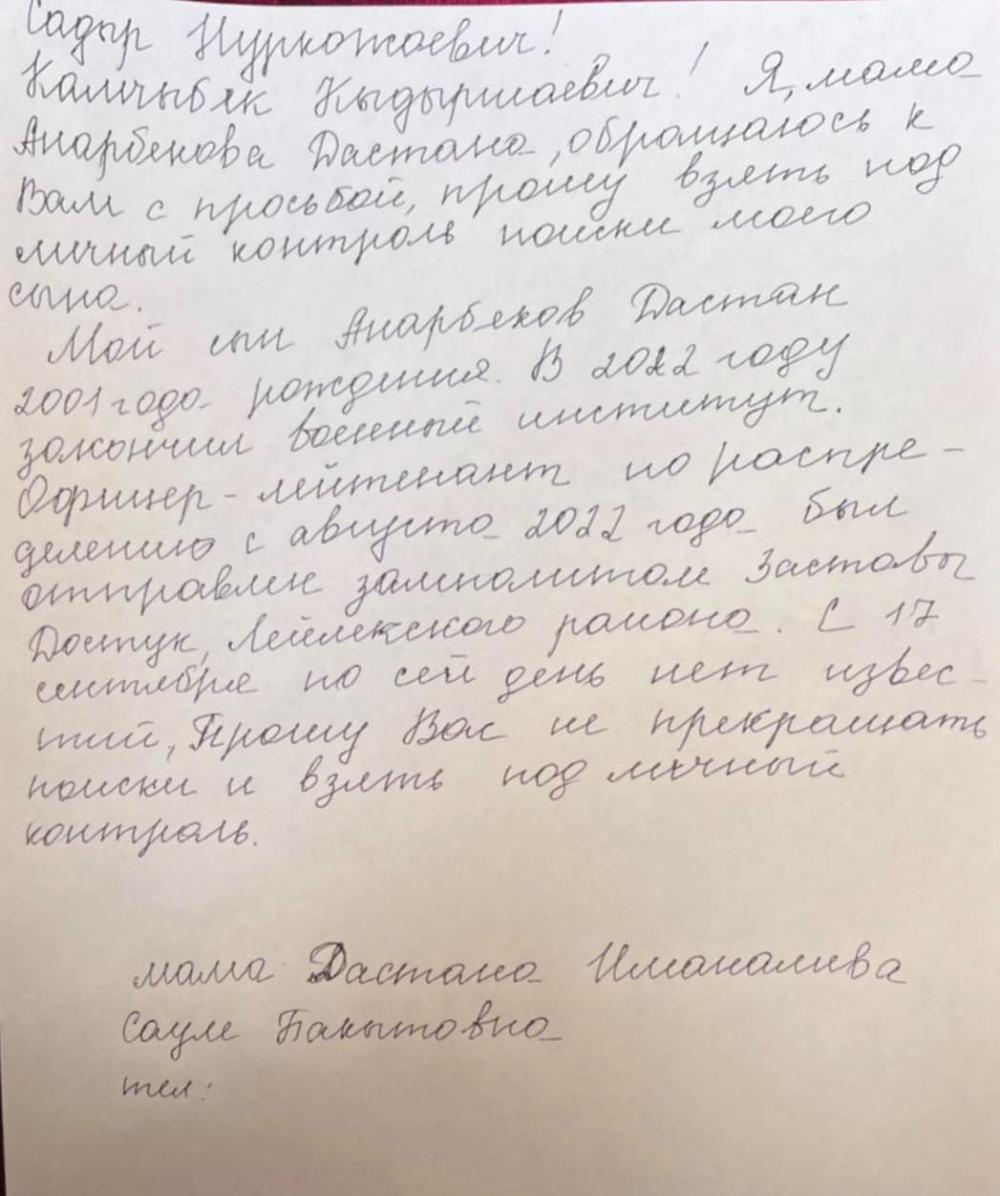 Садыр Нуркожоевич!
Камчыбек Кыдыршаевич! Я, мама
Анарбекова Дастана, обращаюсь к
Вам с просьбой, прошу взять под
личный контроль поиски моего
сына.
Мой сын Анарбеков Дастан
2001 года рождения. В 2022 году
закончил военный институт.
Офицер-лейтенант по распре-
делению с августа 2022 года был
отправлен замполитом Заставы
Достук, Лейлекского района. С 17
сентября по сей день нет извес-
тий, Прошу Вас не прекращать
поиски и взять под личный
контроль.
мама Дастана Иманалива
Сауле Бакытовна
тел: